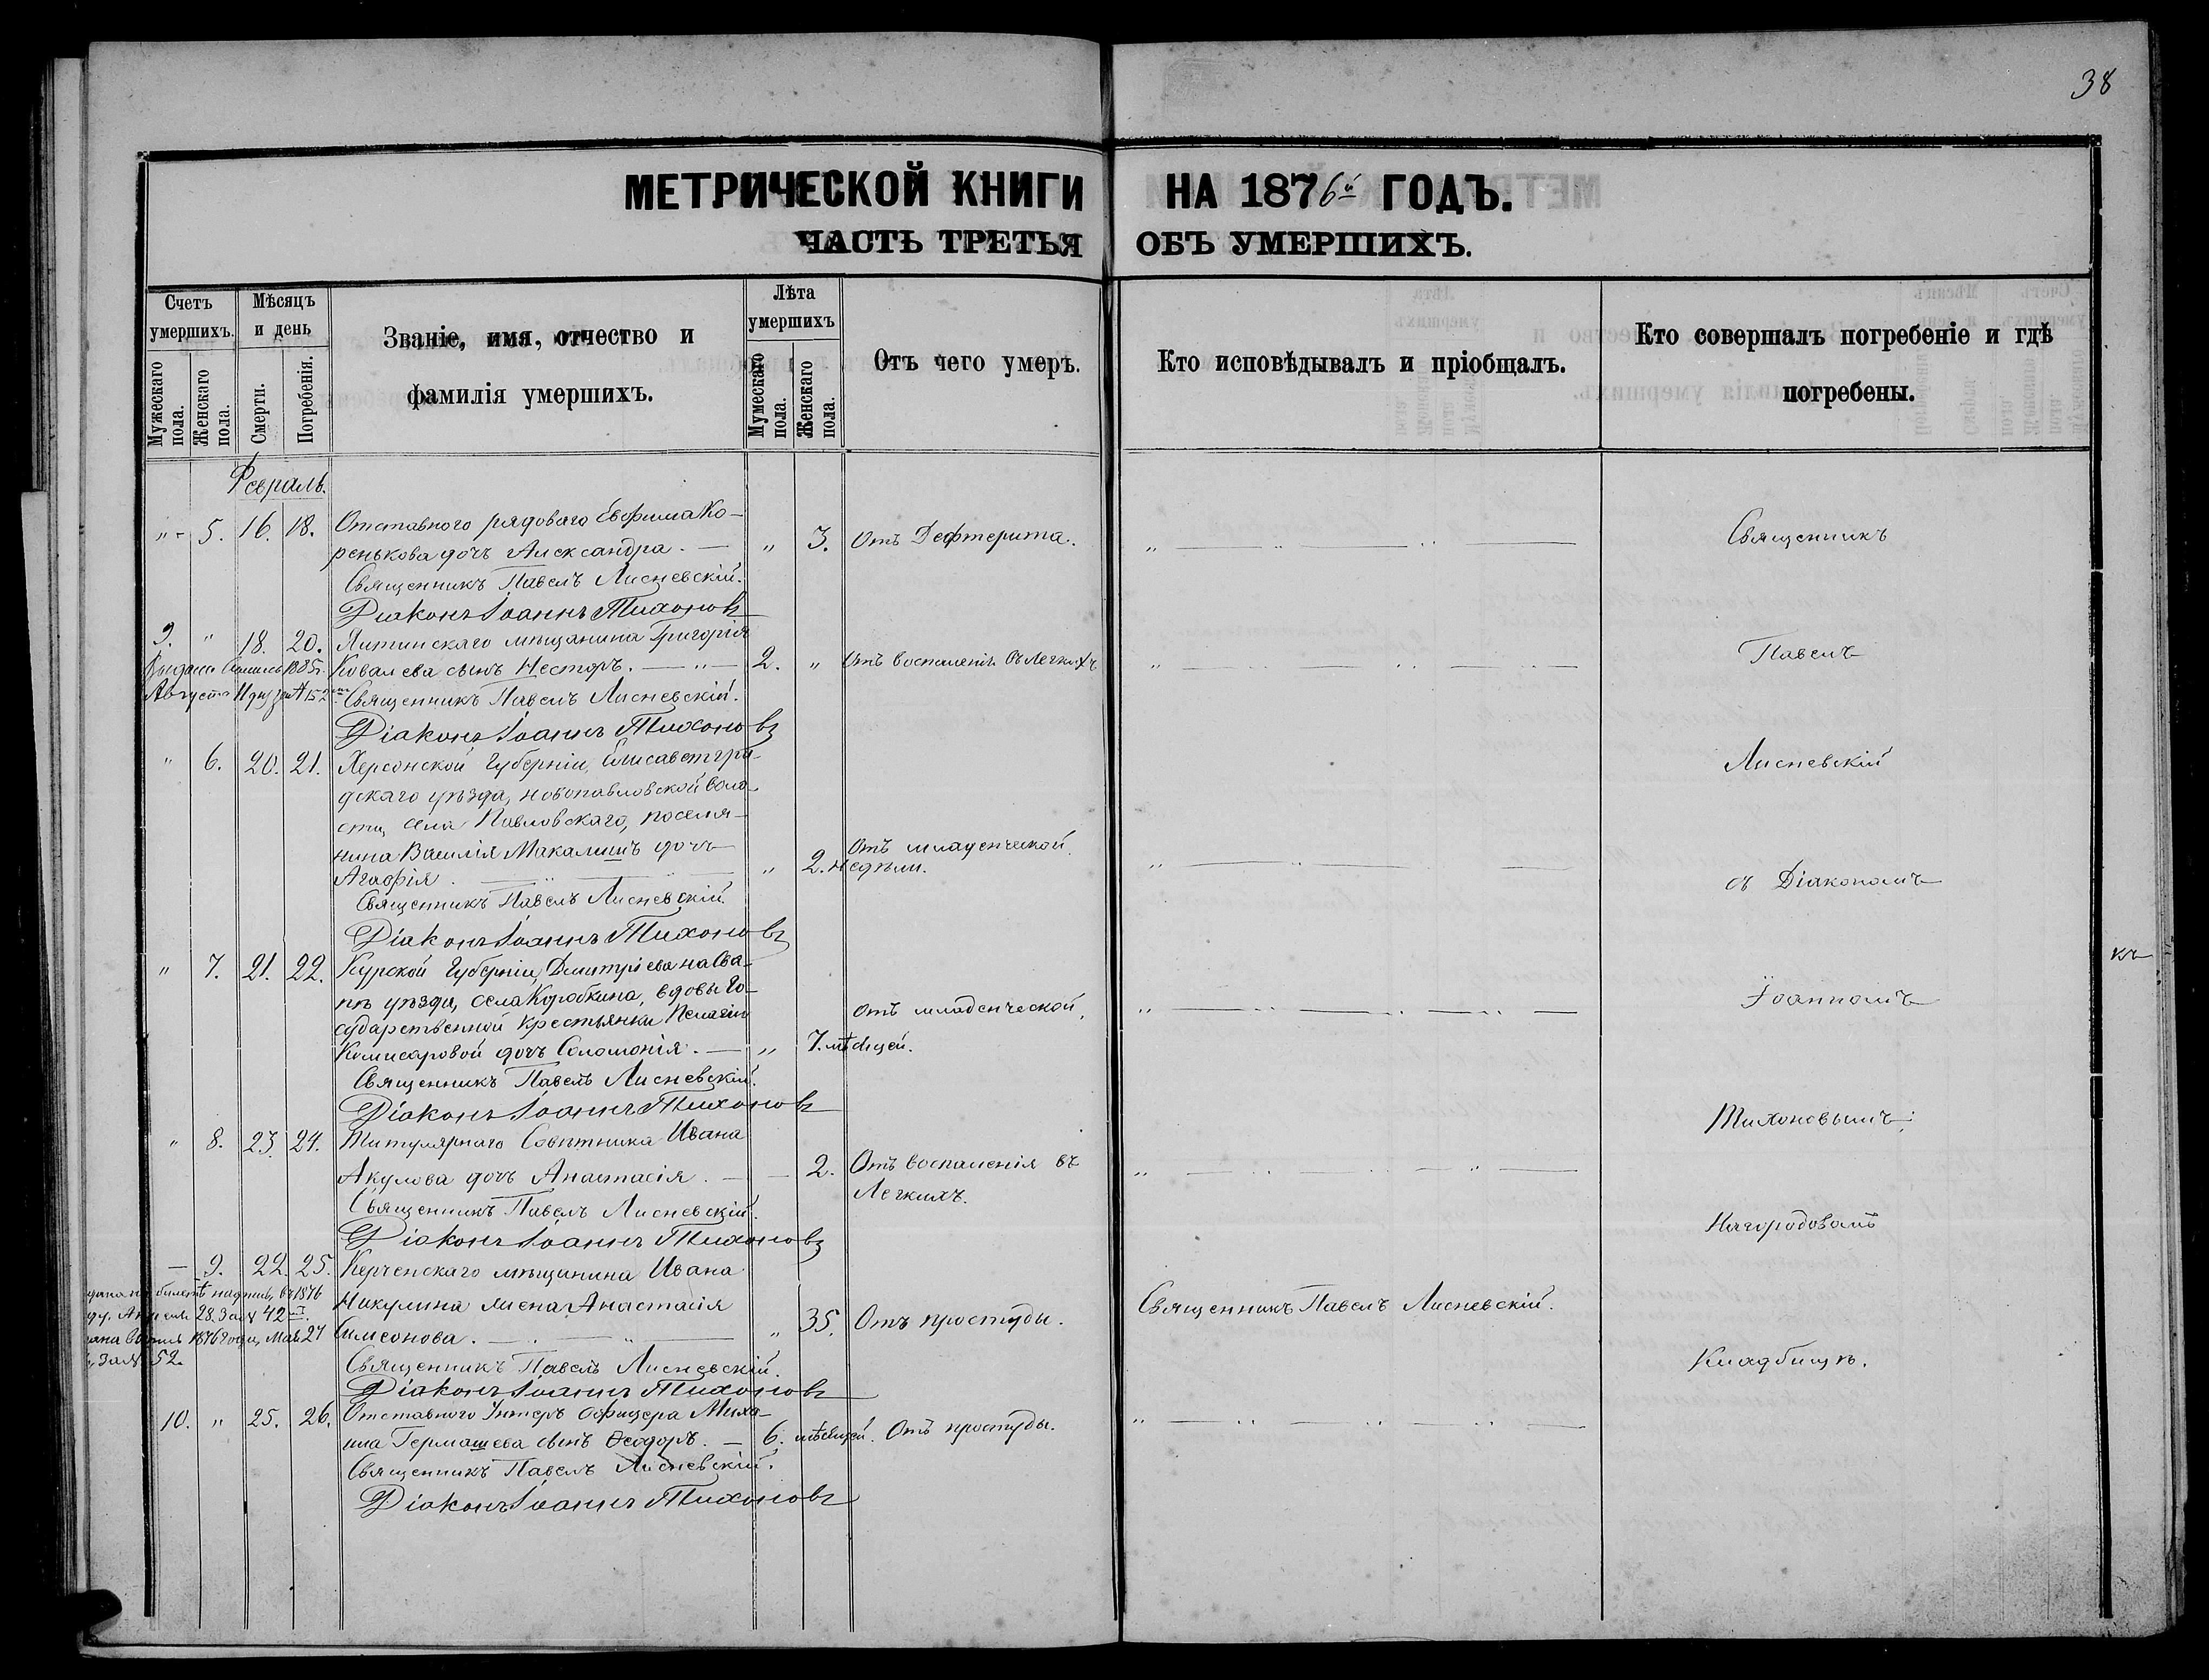 38
МЕТРИЧЕСКОЙ КНИГИ НА 1876й ГОДЪ.
ЧАСТЬ ТРЕТЬЯ ОБЪ УМЕРШИХЪ.
Счетъ умершихъ.
Мужескаго пола.
Женскаго пола.
Мѣсяцъ и день
Смерти.
Погребенія.
Званіе, имя, отчество и
фамилія умершихъ.
Лѣта умершихъ
Мумескаго пола.
Женскаго пола.
Отъ чего умеръ.
Кто исповѣдывалъ и пріобщалъ.
Кто совершалъ погребеніе и гдѣ
погребены.
Февраль.
„ - 5. 16. 18. Отставного рядоваго Евфима Ко-
ренькова дочь Александра. — „ 3. Отъ Дефтерита.
Священникъ Павелъ Лисневскій.
Діаконъ Іоаннъ Тихоновъ
9. „ 18. 20. Ялтинскаго мѣщанина Григорія
Ковалева сынъ Несторъ. — „ — 2. „ Отъ воспаленія въ Легкихъ
Августа 11 дня за № 152
Священникъ Павелъ Лисневскій.
Діаконъ Іоаннъ Тихоновъ
„ 6. 20. 21. Херсонской Губерніи, Елисаветгра-
дскаго уѣзда, новопавловской воло-
сти, села Павловскаго, поселя-
нина Василія Макалишъ дочь
Агафія. „ 2. недѣли. Отъ младенческой.
Священникъ Павелъ Лисневскій.
Діаконъ Іоаннъ Тихоновъ
„ 7. 21. 22. Курской Губерніи, Дмитріева на Сва-
пѣ уѣзда, села Коробкина, вдовы Го-
сударственной крестьянки Пелагіи
Комисаровой дочь Соломонія. — „ 7. мѣсяцей. Отъ младенческой.
Священникъ Павелъ Лисневскій.
Діаконъ Іоаннъ Тихоновъ
„ 8. 23. 24. Титулярнаго Совѣтника Ивана
Акулова дочь Анастасія. — 2. Отъ воспаленія въ
Легкихъ.
Священникъ Павелъ Лисневскій.
Діаконъ Іоаннъ Тихоновъ
— 9. 22. 25. Керченскаго мѣщанина Ивана
Никулина жена Анастасія
Симеонова. „ 35. Отъ простуды. Священникъ Павелъ Лисневскій.
Апреля 28. За № 42
1876 года, Мая 27
За № 52.
Священникъ Павелъ Лисневскій.
Діаконъ Іоаннъ Тихоновъ
10. „ 25. 26. Отставного Унтеръ Офицера Миха-
ила Гермашева сынъ Ѳеодоръ. — 6. мѣсяцей. Отъ простуды.
Священникъ Павелъ Лисневскій.
Діаконъ Іоаннъ Тихоновъ
Священникъ
Павелъ
Лисневскій
съ Діакономъ
Іоанномъ
Тихоновымъ
Нагородовомъ
Кладбищѣ.
къ